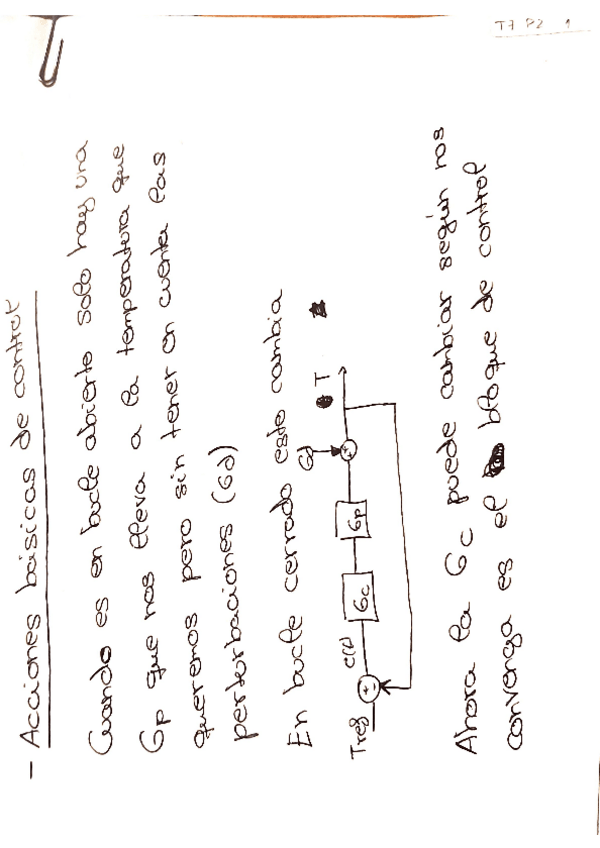 T7 P2 1
- Acciones básicas de control
Cuando es en bucle abierto solo hay una
Gp que nos lleva a la temperatura que
queremos pero sin tener en cuenta las
perturbaciones (Gd)
En bucle cerrado esto cambia
Gd
Tref + e(t) Gc Gp + T
Ahora la Gc puede cambiar según nos
convenga es el bloque de control